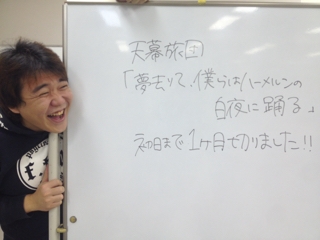 天幕旅団
「夢去りて、僕らはハーメルンの
白夜に踊る」
初日まで1ヶ月切りました!!